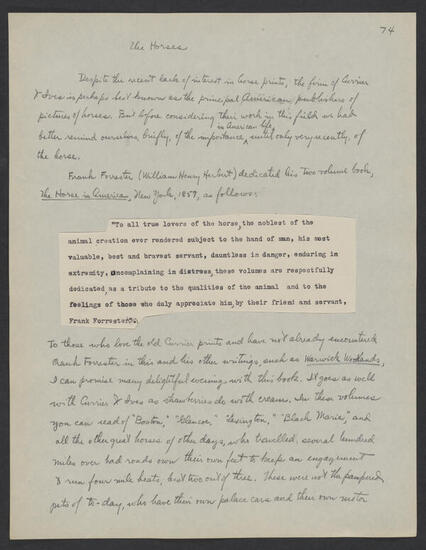 74
The Horses
Despite the recent lack of interest in horse prints, the firm of Currier
& Ives is perhaps best known as the principal American publishers of
pictures of horses. But before considering their work in this field we had
better remind ourselves, briefly, of the importance, in American life, until only very recently, of
the horse.
Frank Forrester (William Henry Herbert) dedicated his two volume book,
The Horse in America, New York, 1857, as follows:
"To all true lovers of the horse, the noblest of the
animal creation ever rendered subject to the hand of man, his most
valuable, best and bravest servant, dauntless in danger, enduring in
extremity, uncomplaining in distress, these volumes are respectfully
dedicated, as a tribute to the qualities of the animal and to the
feelings of those who duly appreciate him, by their friend and servant,
Frank Forrester."
To those who love the old Currier prints and have not already encountered
Frank Forrester in this and his other writings, such as Warwick Woodlands,
I can promise many delightful evenings with this book. It goes as well
with Currier & Ives as strawberries do with cream. In these volumes
you can read of "Boston," "Glencoe," "Lexington," "Black Maria," and
all the other great horses of other days, who travelled several hundred
miles over bad roads on their own feet to keep an engagement
& run four mile heats, best two out of three. These were not the pampered
pets of to-day, who have their own palace cars and their own motor